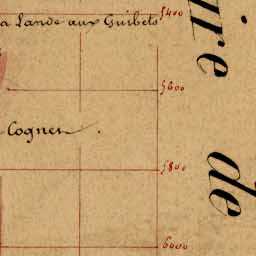 a Lande aux Guibets
5400
5600
Cogner.
5800
6000
de